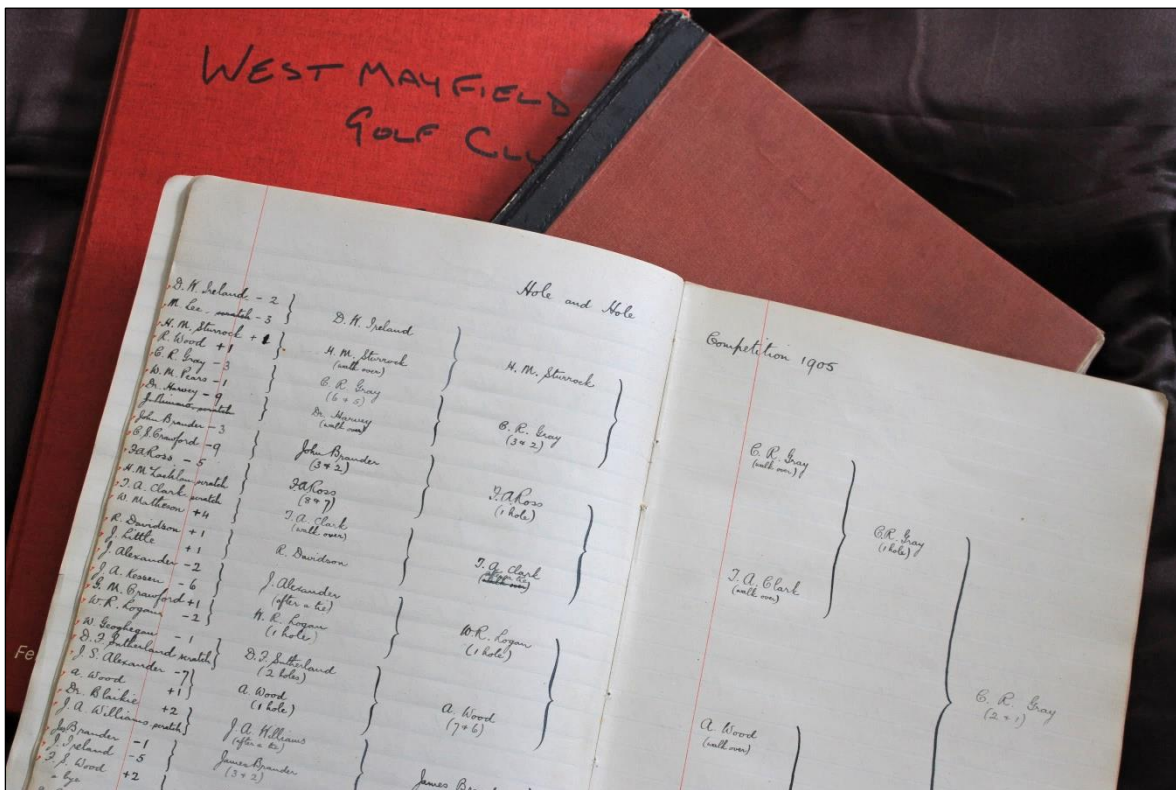 WEST MAYFIELD
GOLF CLU
Hole and Hole
D. W. Ireland - 2
M. Lee scratch - 3
H. M. Sturrock + 1
R. Wood + 1
C. R. Gray - 3
W. M. Pears - 1
Dr. Harvey - 9
scratch
John Brander - 3
C. S. Crawford - 9
F.A. Ross - 5
H. McLachlan scratch
T. A. Clark scratch
W. Matheson + 4
R. Davidson + 1
J. Little + 1
J. Alexander - 2
J. A. Kessen - 6
G. M. Crawford + 1
W. R. Logan - 2
W. Geoghegan - 1
D. F. Sutherland scratch
J. S. Alexander - 7
A. Wood + 1
Dr. Blaikie + 2
J. A. Williams scratch
Js Brander - 1
J. Ireland - 5
F. S. Wood + 2
- bye
D. W. Ireland
H. M. Sturrock
(walk over)
C. R. Gray
(6 & 5)
Dr. Harvey
(walk over)
John Brander
(3 & 2)
F.A. Ross
(8 & 7)
T. A. Clark
(walk over)
R. Davidson
J. Alexander
(after a tie)
W. R. Logan
(1 hole)
D. F. Sutherland
(2 holes)
A. Wood
(1 hole)
J. A. Williams
(after a tie)
James Brander
(3 & 2)
H. M. Sturrock
C. R. Gray
(3 & 2)
F.A. Ross
(1 hole)
T. A. Clark
(walk over)
W. R. Logan
(1 hole)
A. Wood
(7 & 6)
James
Competition 1905
C. R. Gray
(walk over)
T. A. Clark
(walk over)
A. Wood
(walk over)
C. R. Gray
(1 hole)
C. R. Gray
(2 & 1)
Fe